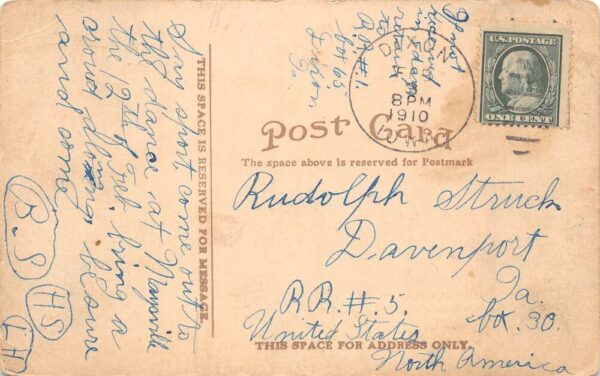 If not
received
in 5 days
return
to
R.R.#.1.
box 65
Dixon
Ia.
DIXON
8 PM
1910
IOWA
U.S. POSTAGE
ONE CENT
Post Card
The space above is reserved for Postmark
THIS SPACE IS RESERVED FOR MESSAGE.
Say sport come out to
the dance at Maysville
the 12th of Feb. bring a
crowd along be sure
and come
B.S
HS
LH
Rudolph Struck
Davenport
Ia.
R.R.#.5.
box.30.
United States
THIS SPACE FOR ADDRESS ONLY.
North America